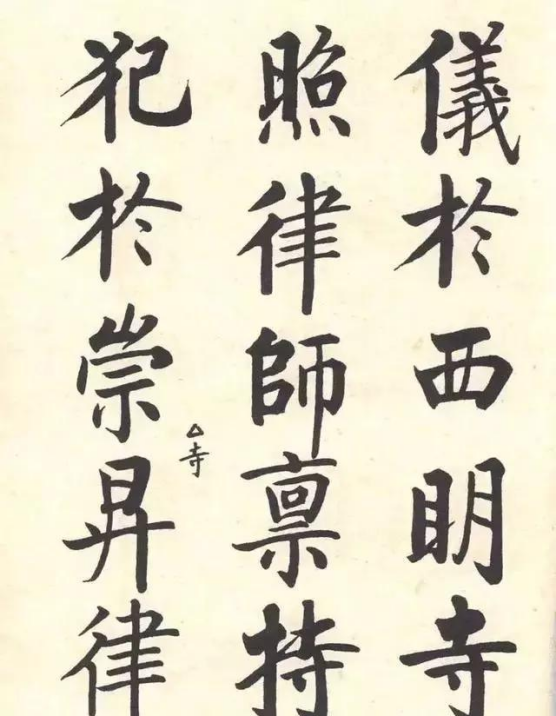 儀於西明寺
照律師禀持
犯於崇昇律
寺